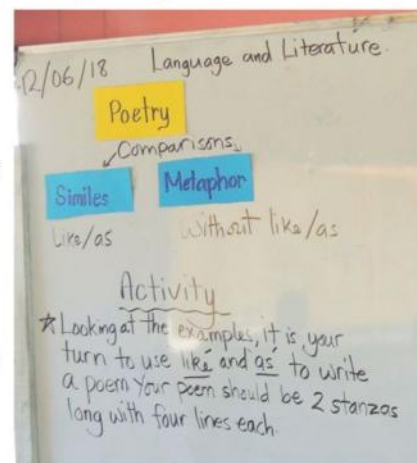 12/06/18 Language and Literature.
Poetry
Comparisons
Similes Metaphor
Like/as Without like/as
Activity
* Looking at the examples, it is your
turn to use like and as to write
a poem Your poem should be 2 stanzas
long with four lines each.